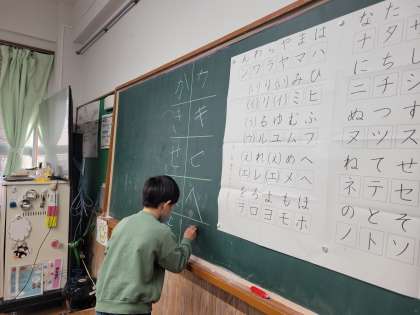 か ウ
キ
せ ヒ
ヘ
ん わ ら や ま は
ン ワ ラ ヤ マ ハ
(い) り (い) み ひ
(イ) リ (イ) ミ ヒ
(う) る ゆ む ふ
(ウ) ル ユ ム フ
(え) れ (え) め へ
(エ) レ (エ) メ ヘ
を ろ よ も ほ
ヲ ロ ヨ モ ホ
な た
ナ タ サ
に ち し
ニ チ シ
ぬ つ す
ヌ ツ ス
ね て せ
ネ テ セ
の と そ
ノ ト ソ